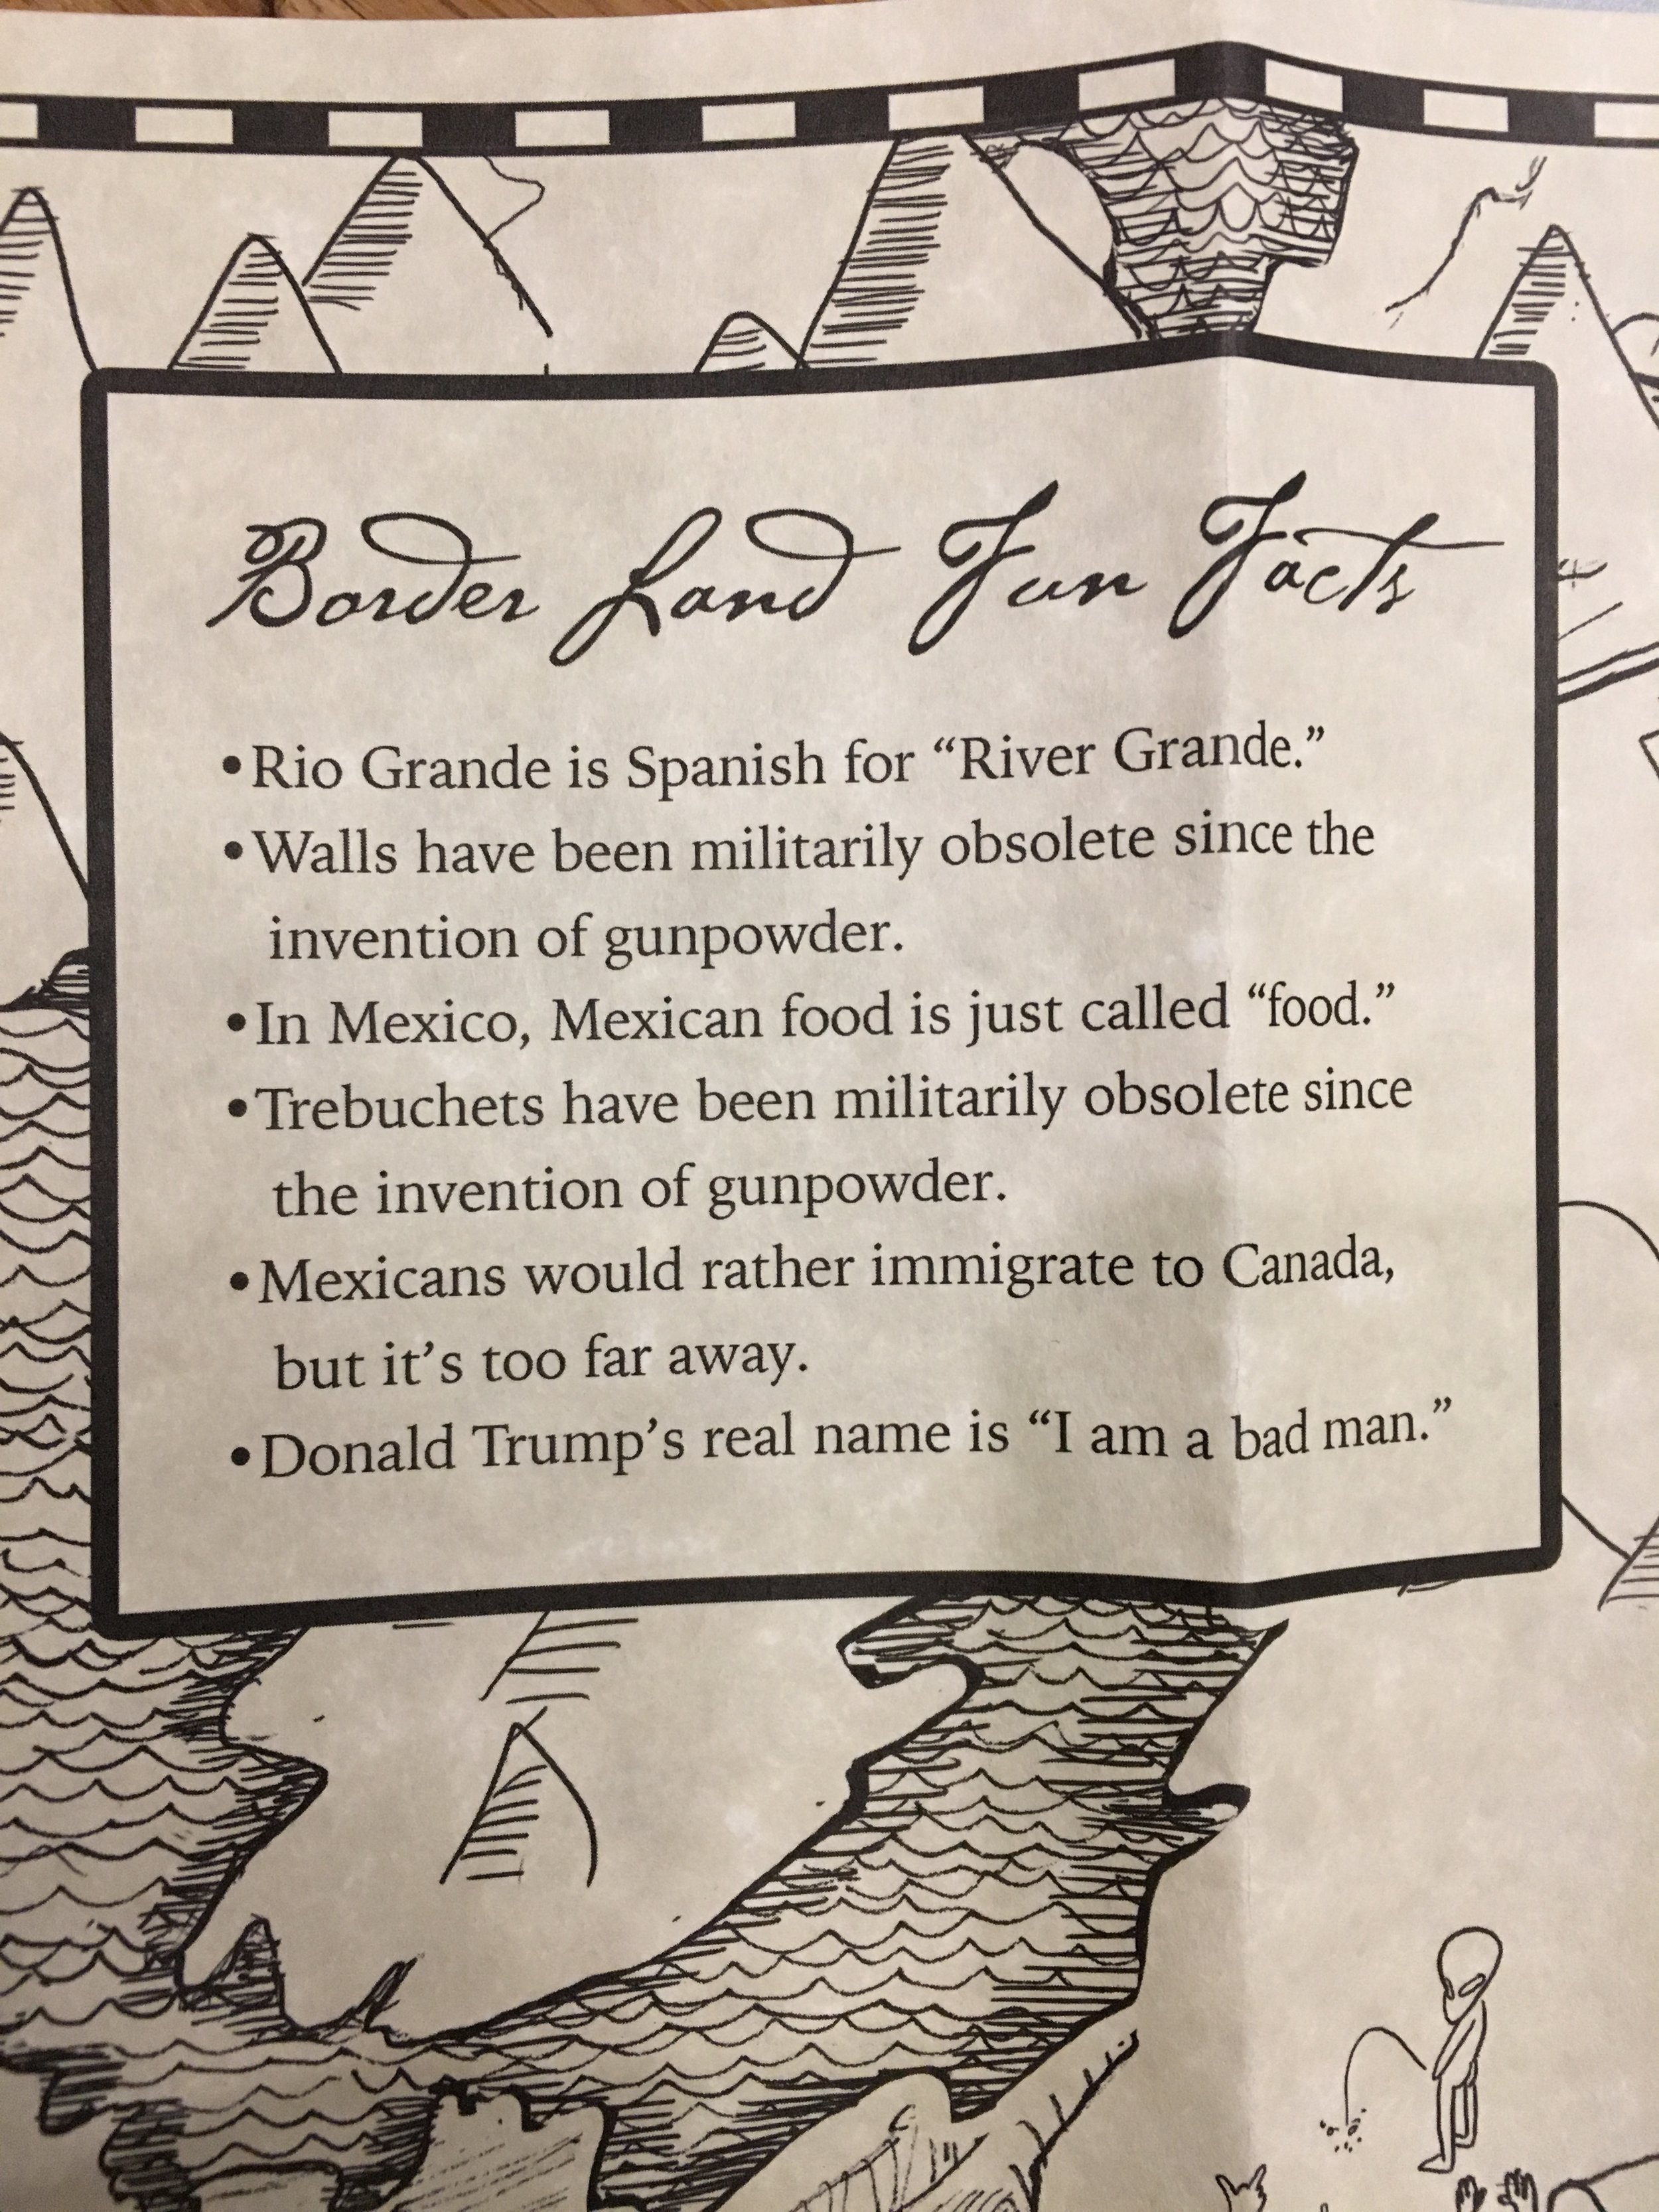 Border Land Fun Facts
•Rio Grande is Spanish for “River Grande.”
•Walls have been militarily obsolete since the
invention of gunpowder.
•In Mexico, Mexican food is just called “food.”
•Trebuchets have been militarily obsolete since
the invention of gunpowder.
•Mexicans would rather immigrate to Canada,
but it’s too far away.
•Donald Trump’s real name is “I am a bad man.”